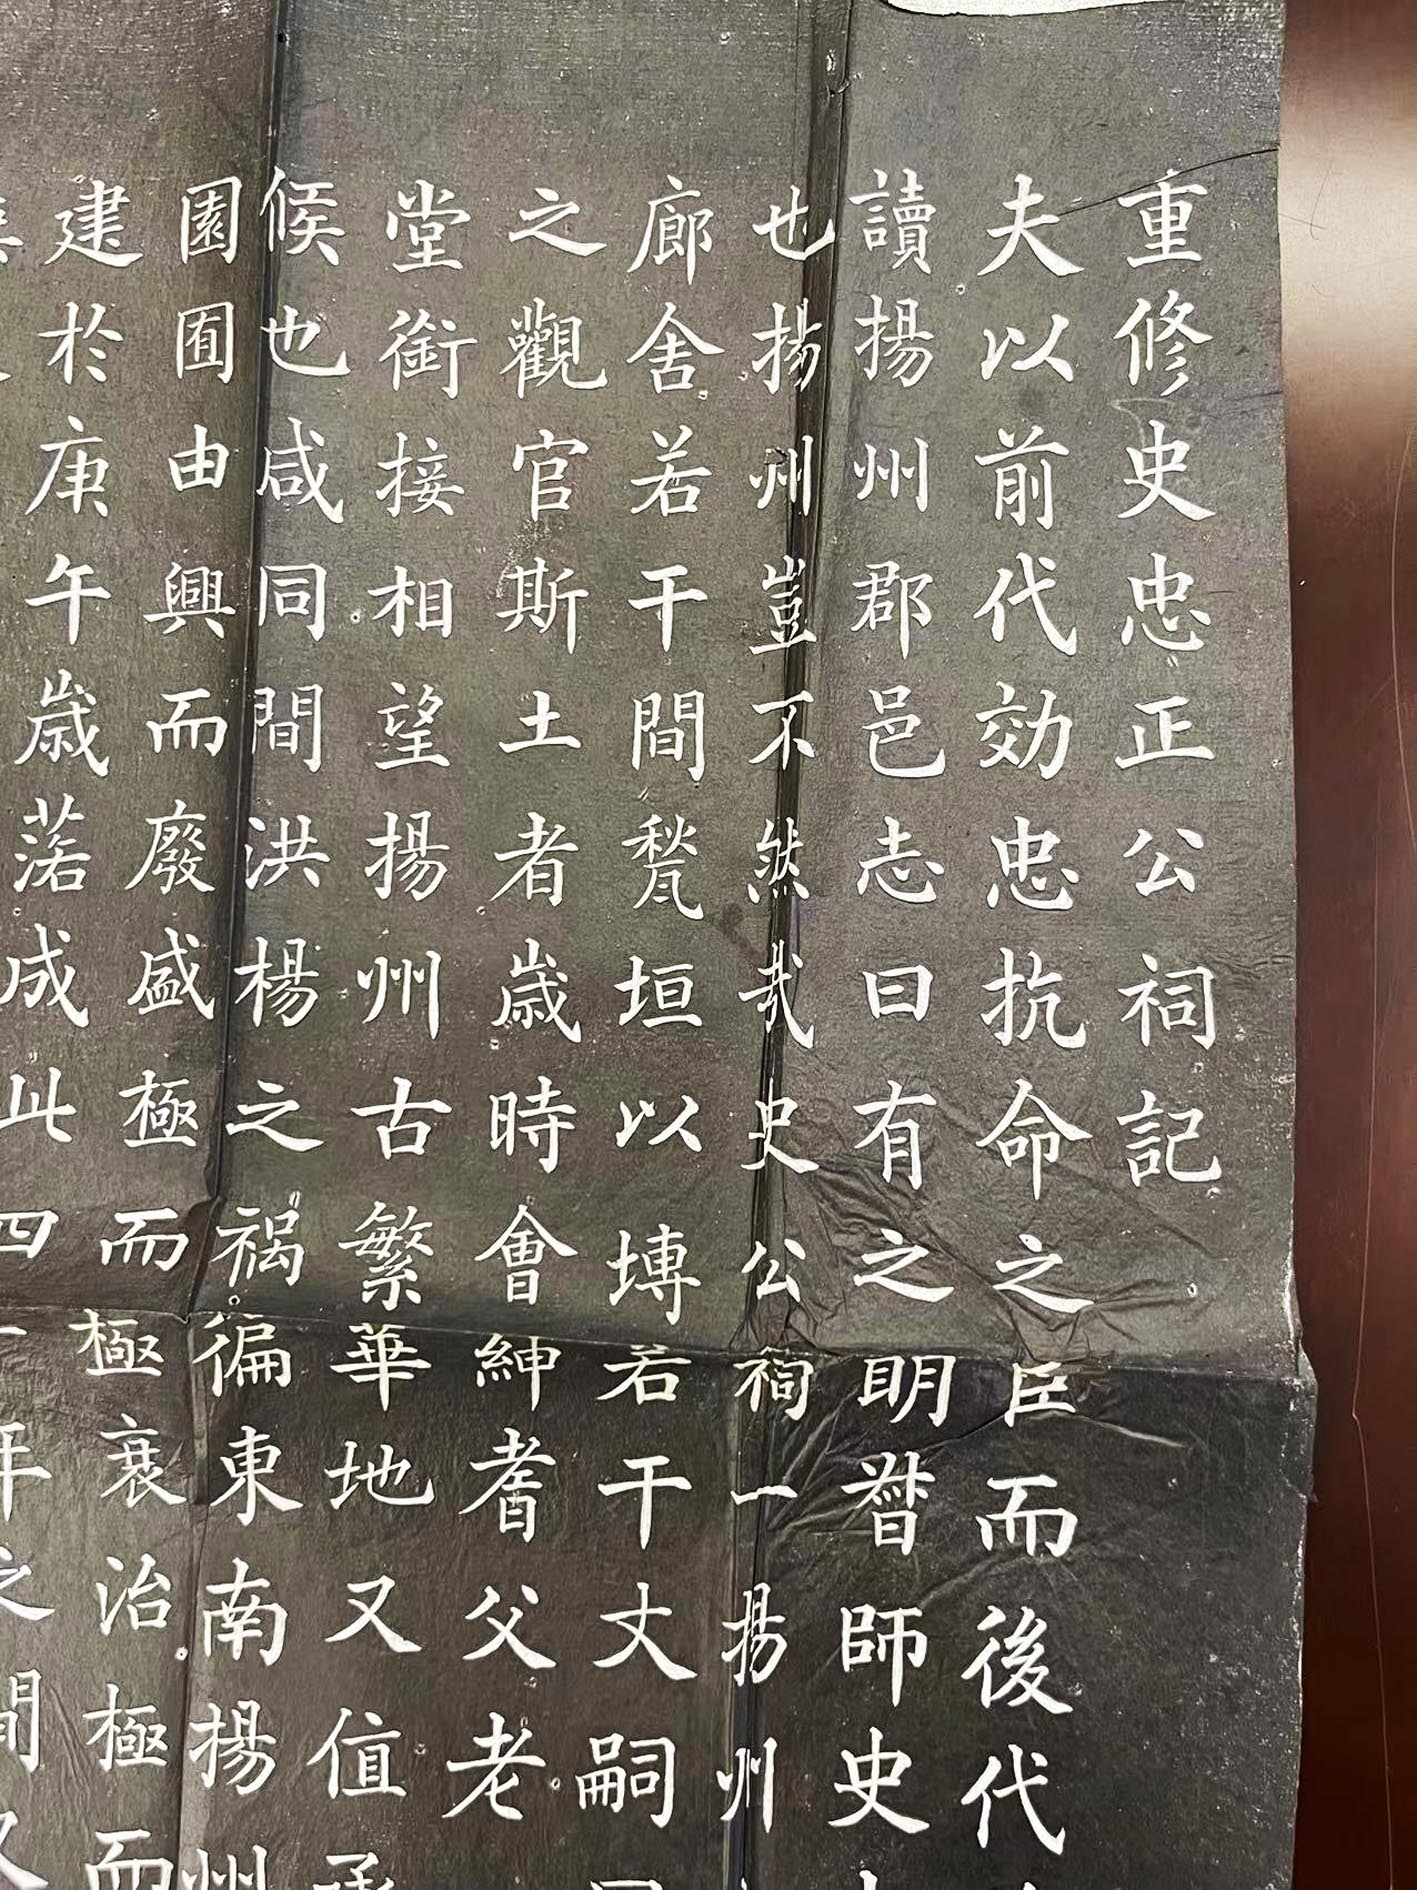 重修史忠正公祠記
夫以前代効忠抗命之臣而後代
讀揚州郡邑志曰有之明督師史
也揚州豈不然哉史公祠一揚州
廊舍若干間甃垣以塼若干丈嗣
之觀官斯土者歲時會紳耆父老
堂銜接相望揚州古繁華地又值承
候也咸同間洪楊之禍徧東南揚州
園囿由興而廢盛極而極衰治極而
建於庚午歲落成此四
年之間